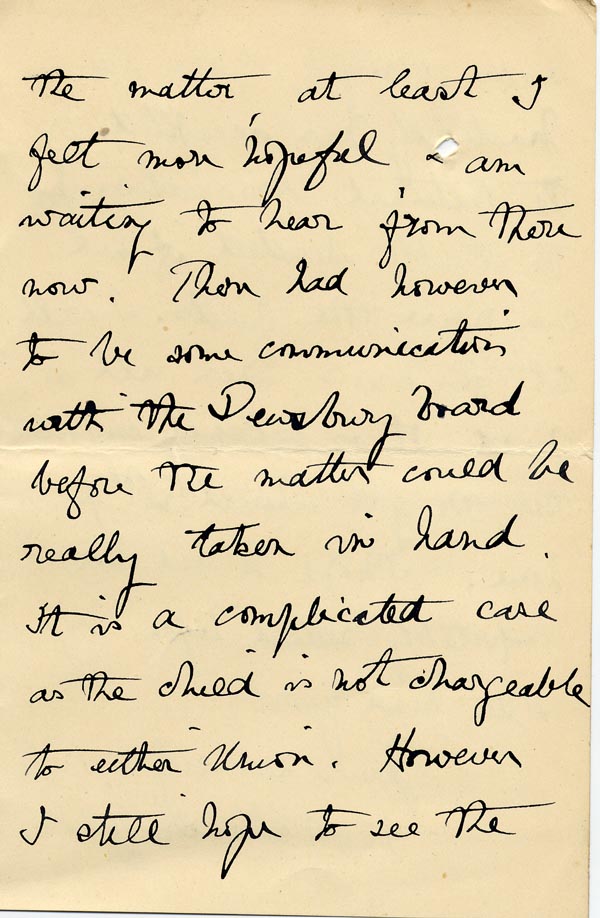 the matter, at least I
felt more hopeful & am
waiting to hear from there
now. There had however
to be some communication
with the Dewsbury Board
before the matter could be
really taken in hand.
It is a complicated case
as the child is not chargeable
to either Union. However
I still hope to see the